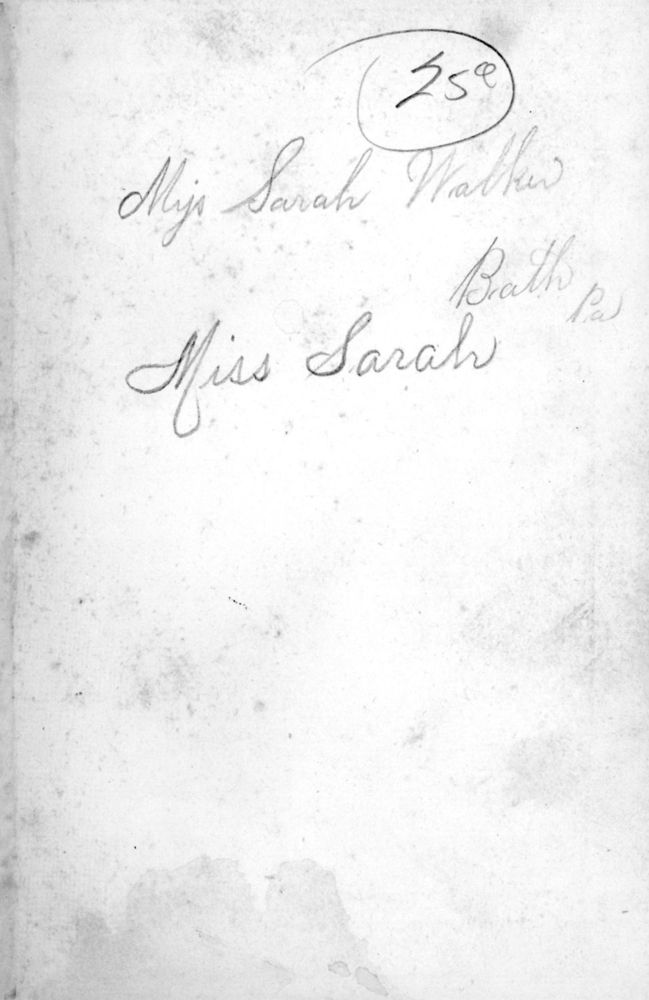 25¢
Miss Sarah Walker
Bath
Pa
Miss Sarah